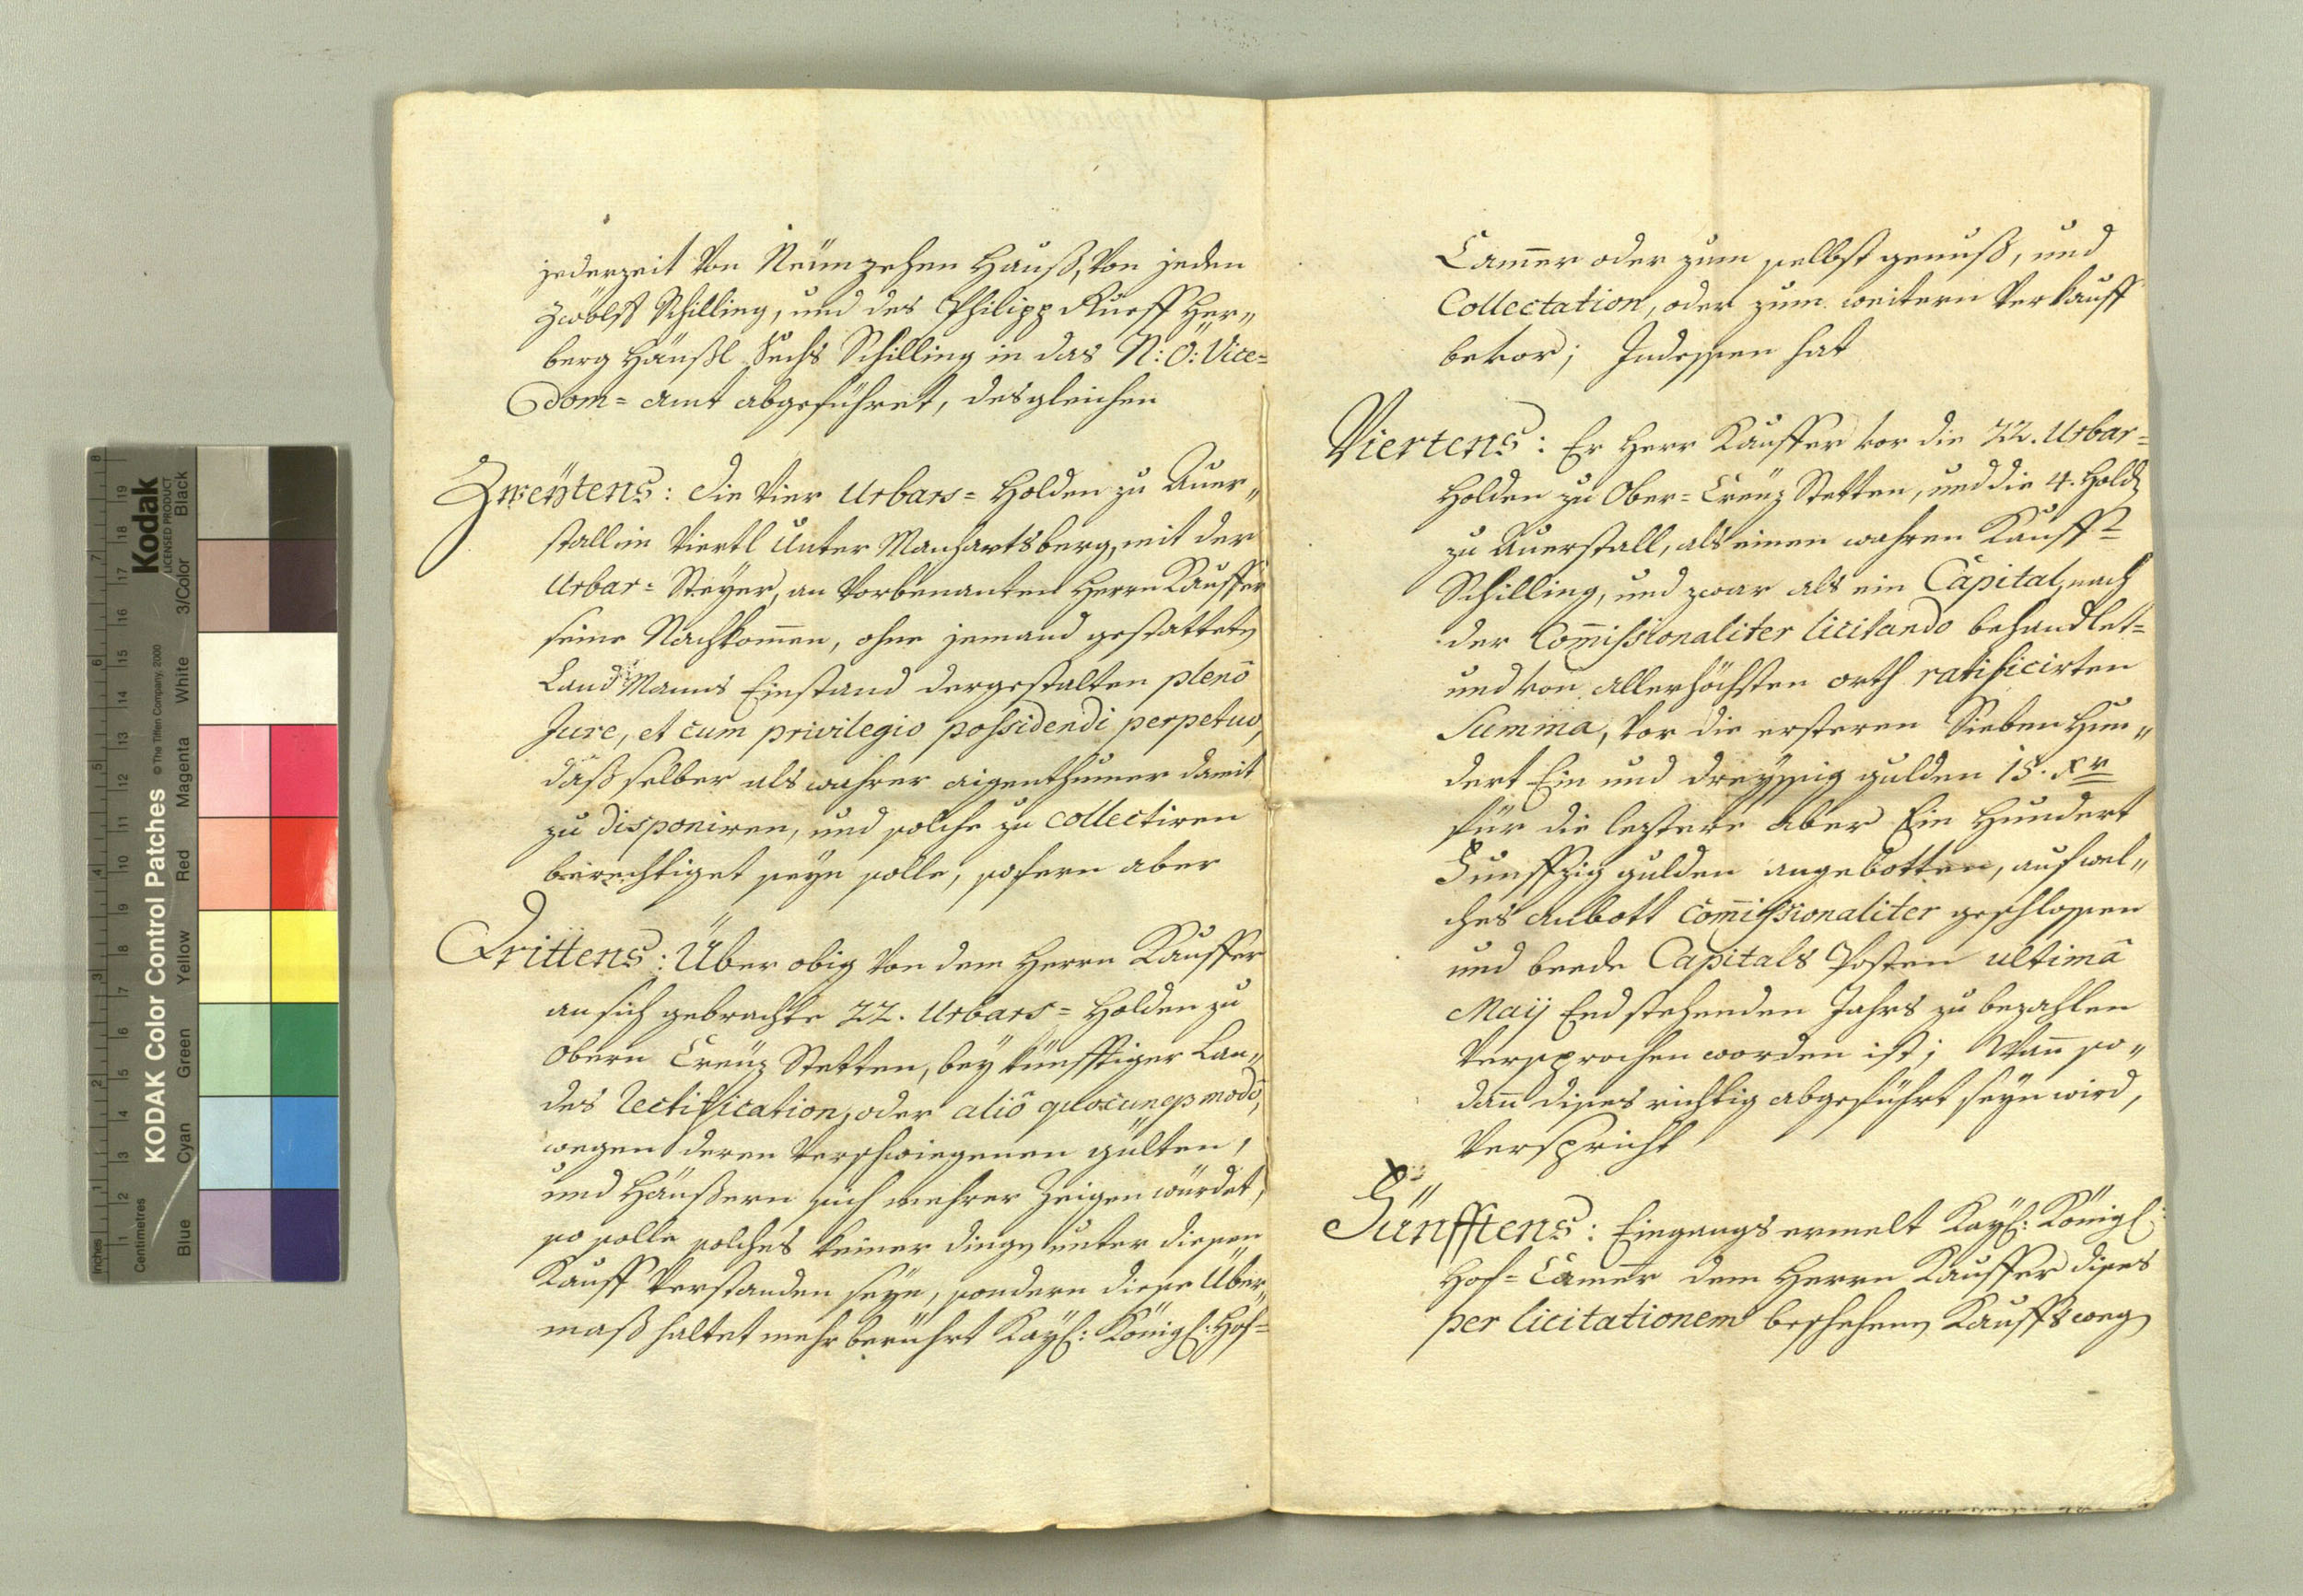 jederzeit von Neünzehen Hauß, von jeden
Zwölff Schilling, und des Philipp Rueff Her„
berg Häußl Sechs Schilling in das N: Ö: Vice=
Dom= amt abgeführet, desgleichen
Zweÿtens: die vier Urbars= Holden zu Auer„
stall im Viertl Unter Manhartsberg, mit der
Urbar= Steÿer, an vorbenanten Herrn Kauffer
seine Nachkom̄en, ohne jemand gestatteten
Land Manns Einstand dergestalten plenô
Jure, et cum privilegio possidendi perpetuo,
daß selber als wahrer aigenthumer damit
zu disponiren, und solche zu collectiren
berechtiget seyn solle, sofern aber
Drittens: Über obig von dem Herrn Kauffer
an sich gebrachte 22. Urbars= Holden zu
Obern Creüz Stetten, beÿ künfftiger Lan„
des Rectification, oder aliô quocunq modô,
wegen deren verschwiegenen gülten,
und Häußern sich mehrer Zeigen würdet,
so solle solches keiner dings unter diesen
Kauff verstanden seÿn, sondern diese Über„
maß haltet mehr berührt Kaÿl: Königl: Hof=
Cam̄er oder zum selbst genuß, und
Collectation, oder zum weitern Verkauff
bevor; Indessen hat
Viertens: Er Herr Kauffer vor die 22. Urbar=
Holden zu Ober= Creüz Stetten, und die 4. Hold
zu Auerstall, als einen wahren Kauff=
Schilling, und zwar als ein Capital, nach
der Com̄issionaliter licitando behandlet=
und von allerhöchsten orth ratificirten
Summa, vor die ersteren Sieben Hun„
dert Ein und dreyssig gulden 15. xr
für die leztere aber Ein Hundert
Funffzig gulden angebotten, auf wel„
ches anbott Com̄issionaliter geschlossen
und beede Capitals Posten ultimâ
Maij End stehenden Jahrs zu bezahlen
versprochen worden ist; Wan̄ so„
dan̄ dises richtig abgeführt seyn wird,
verspricht
Fünfftens: Eingangs ermelt Kaÿl: Königl:
Hof= Cam̄er dem Herrn Kauffer dises
per licitationem beschehenen Kauffs weg